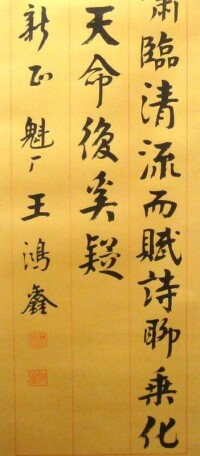 臨清流而賦詩聊乘化
天命復奚疑
新正魁厂王鴻鑫